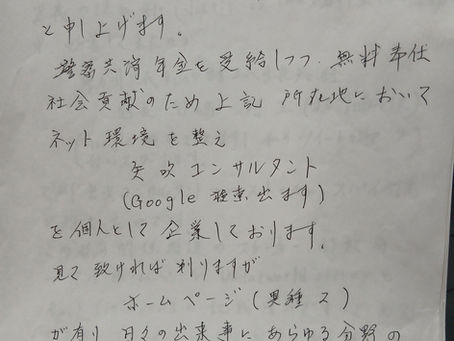 と申し上げます。
警察共済年金を受給しつつ、無料奉仕
社会貢献のため上記 所在地において
ネット環境を整え
矢吹コンサルタント
(Google 検索出ます)
を個人として企業しております。
見て致ければ判りますが
ホームページ(異種ス)
が有り、日々の出来事にあらゆる分野の